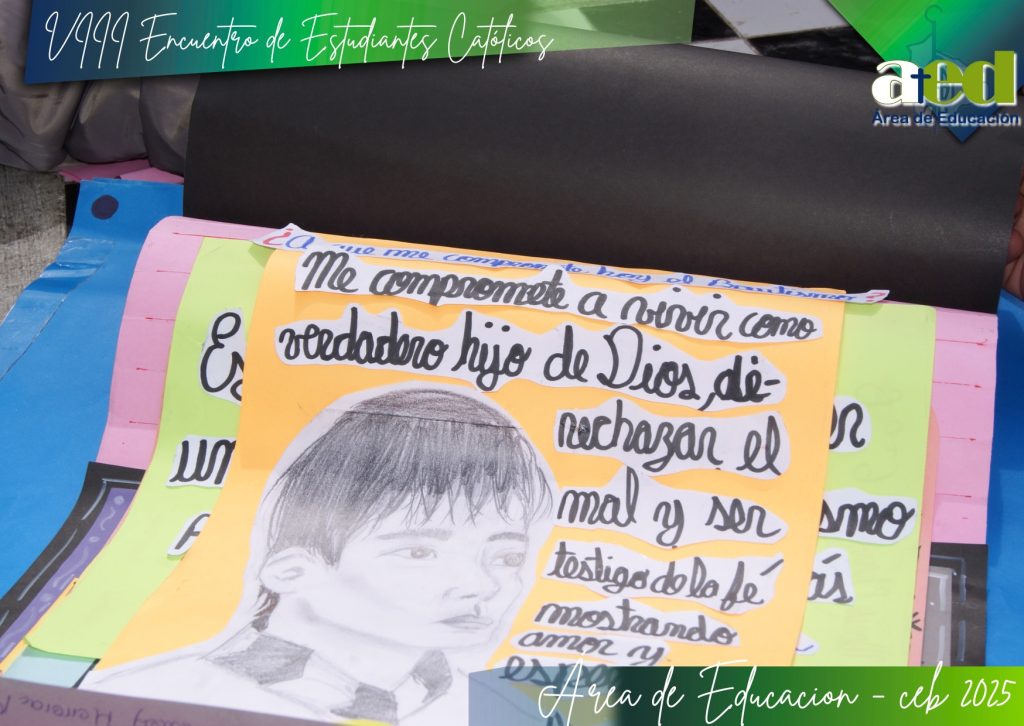 VIII Encuentro de Estudiantes Católicos
aed
Área de Educación
¿A que me compromete hoy el Bautismo?
Me compromete a vivir como
verdadero hijo de Dios, de-
rechazar el
mal y ser
testigo de la fé
mostrando
amor y
Es
un
smo
Area de Educacion - ceb 2025